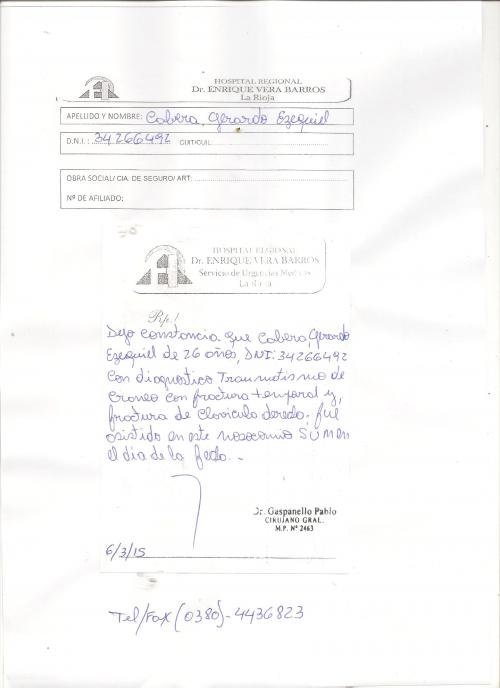 HOSPITAL REGIONAL
Dr. ENRIQUE VERA BARROS
La Rioja
APELLIDO Y NOMBRE: Cabera, Gerardo Ezequiel
D.N.I.: 34266492 CUIT/CUIL:
OBRA SOCIAL/ CIA. DE SEGURO/ ART:
Nº DE AFILIADO:
HOSPITAL REGIONAL
Dr. ENRIQUE VERA BARROS
Servicio de Urgencias Medicas
La Rioja
Rp./
Dejo constancia que Cabera, Gerardo
Ezequiel de 26 años, DNI: 34266492
con diagnostico Traumatismo de
Craneo con fractura temporal y,
fractura de Clavicula derecha, fué
asistido en este nosocomio SUM en
el dia de la fecha.-
Dr. Gaspanello Pablo
CIRUJANO GRAL.
M.P. Nº 2463
6/3/15
Tel/Fax (0380)-4436823